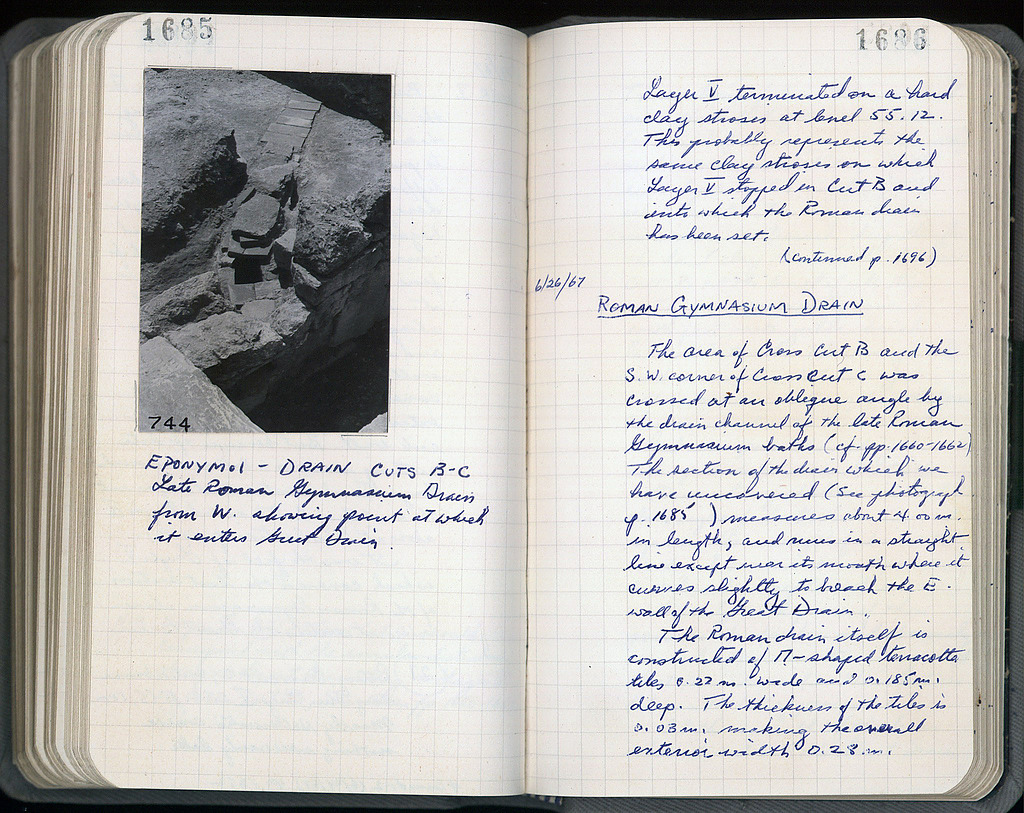 1685
744
EPONYMOI - DRAIN CUTS B-C
Late Roman Gymnasium Drain
from W. showing point at which
it enters Great Drain.
1686
Layer V terminated on a hard
clay stroses at level 55.12.
This probably represents the
same clay stroses on which
Layer V stopped in Cut B and
into which the Roman drain
has been set.
(continued p. 1696)
6/26/67
ROMAN GYMNASIUM DRAIN
The area of Cross Cut B and the
S.W. corner of Cross Cut C was
crossed at an oblique angle by
the drain channel of the late Roman
Gymnasium baths (cf. pp. 1660-1662)
The section of the drain which we
have uncovered (see photograph
p. 1685 ) measures about 4.00 m.
in length, and runs in a straight
line except near its mouth where it
curves slightly to breach the E.
wall of the Great Drain.
The Roman drain itself is
constructed of Π-shaped terracotta
tiles 0.22 m. wide and 0.185 m.
deep. The thickness of the tiles is
0.03 m. making the overall
exterior width 0.28 m.